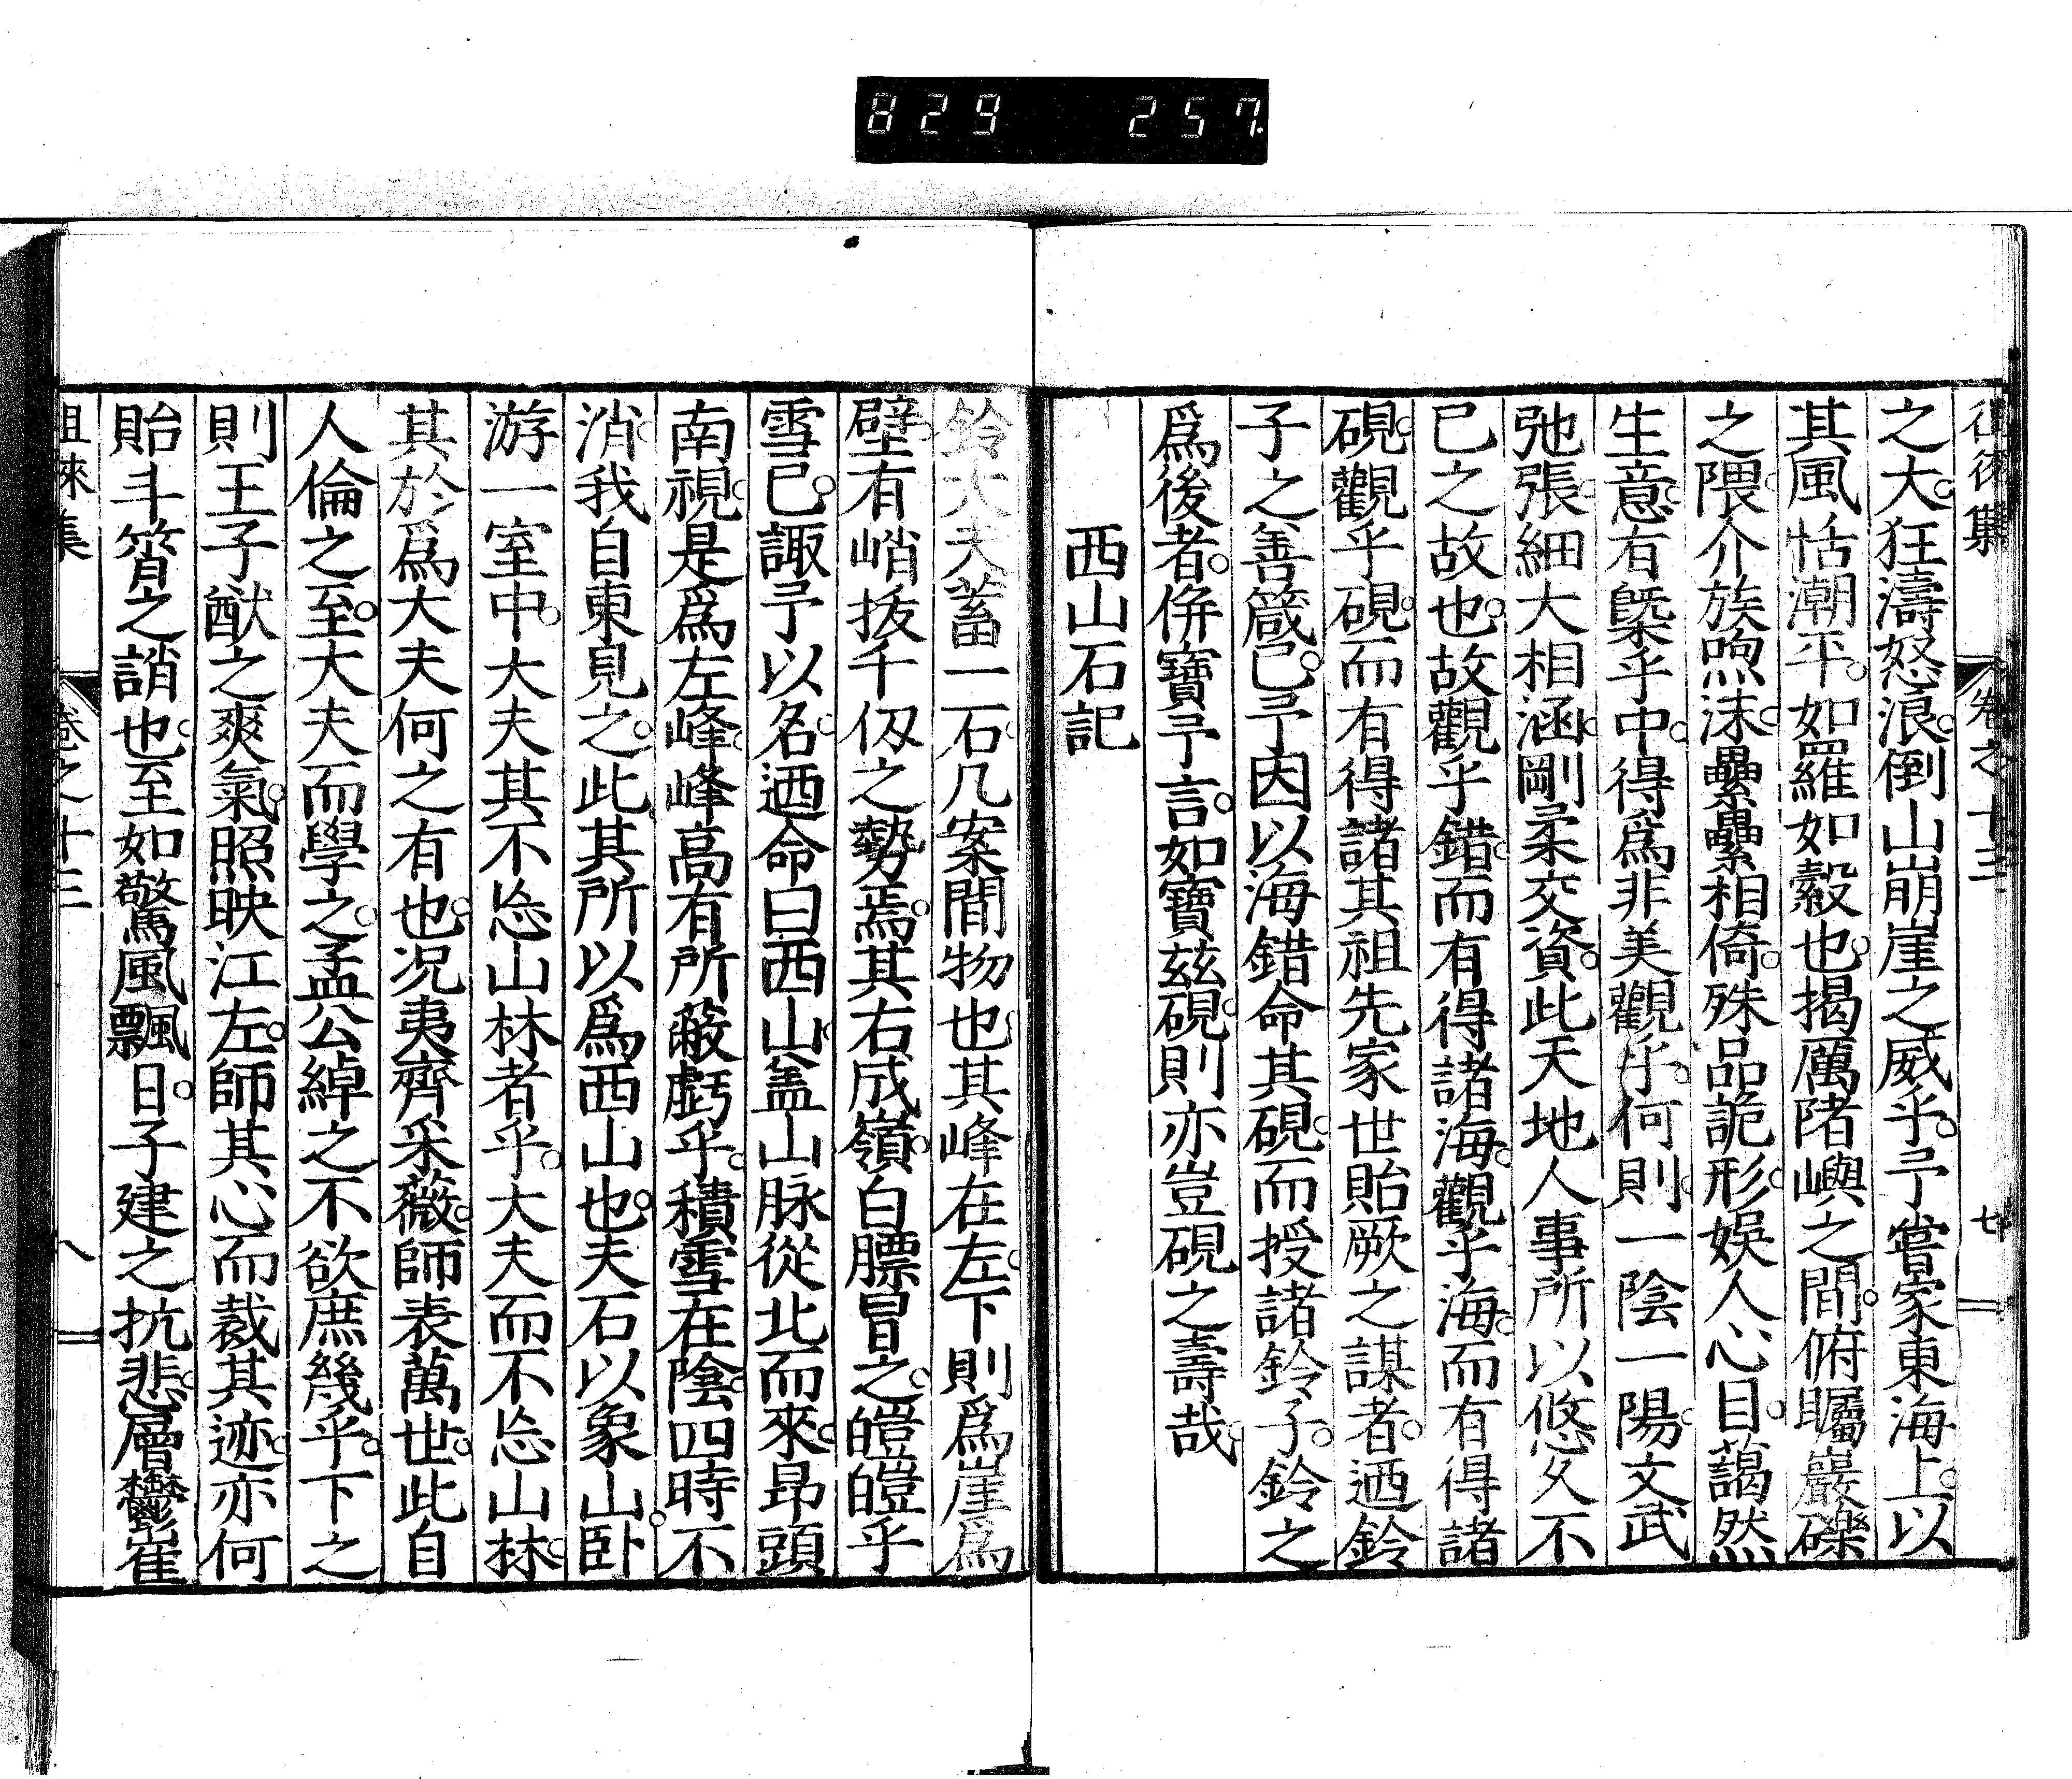 829 257.
徂徠集 卷之十三 七
之大。狂濤怒浪。倒山崩崖之威乎。予嘗家東海上。以
其風恬潮平。如羅如縠也。揭厲陼嶼之間。俯矚巖礫
之隈。介族喣沫。纍纍相倚。殊品詭形。娛人心目。藹然
生意。有槩乎中。得爲非美觀乎。何則。一陰一陽。文武
弛張。細大相涵。剛柔交資。此天地人事所以悠久不
已之故也。故觀乎錯。而有得諸海。觀乎海。而有得諸
硯。觀乎硯。而有得諸其祖先家世貽厥之謀者。迺鈴
子之善箴已。予因以海錯命其硯。而授諸鈴子。鈴之
爲後者。倂寶予言。如寶玆硯。則亦豈硯之壽哉。
西山石記
鈴大夫蓄一石。几案間物也。其峰在左。下則爲崖爲
壁。有峭拔千仭之勢焉。其右成嶺。白膘冒之。皚皚乎
雪已。諏予以名。迺命曰西山。盖山脉從北而來。昂頭
南視。是爲左峰。峰高有所蔽虧乎。積雪在陰。四時不
消。我自東見之。此其所以爲西山也。夫石以象山。臥
游一室中。大夫其不忘山林者乎。大夫而不忘山林。
其於爲大夫何之有也。况夷齊采薇。師表萬世。此自
人倫之至。大夫而學之。孟公綽之不欲庶幾乎。下之
則王子猷之爽氣。照映江左。師其心而裁其迹。亦何
貽斗筲之誚也。至如驚風飄日。子建之抗悲。層鬱崔
徂徠集 卷之十三 八